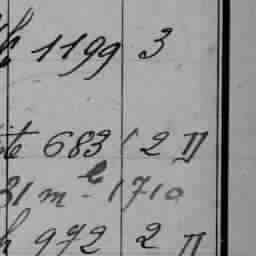 1199 3
te 683 2 II
31 m - 1710
h 972 2 II